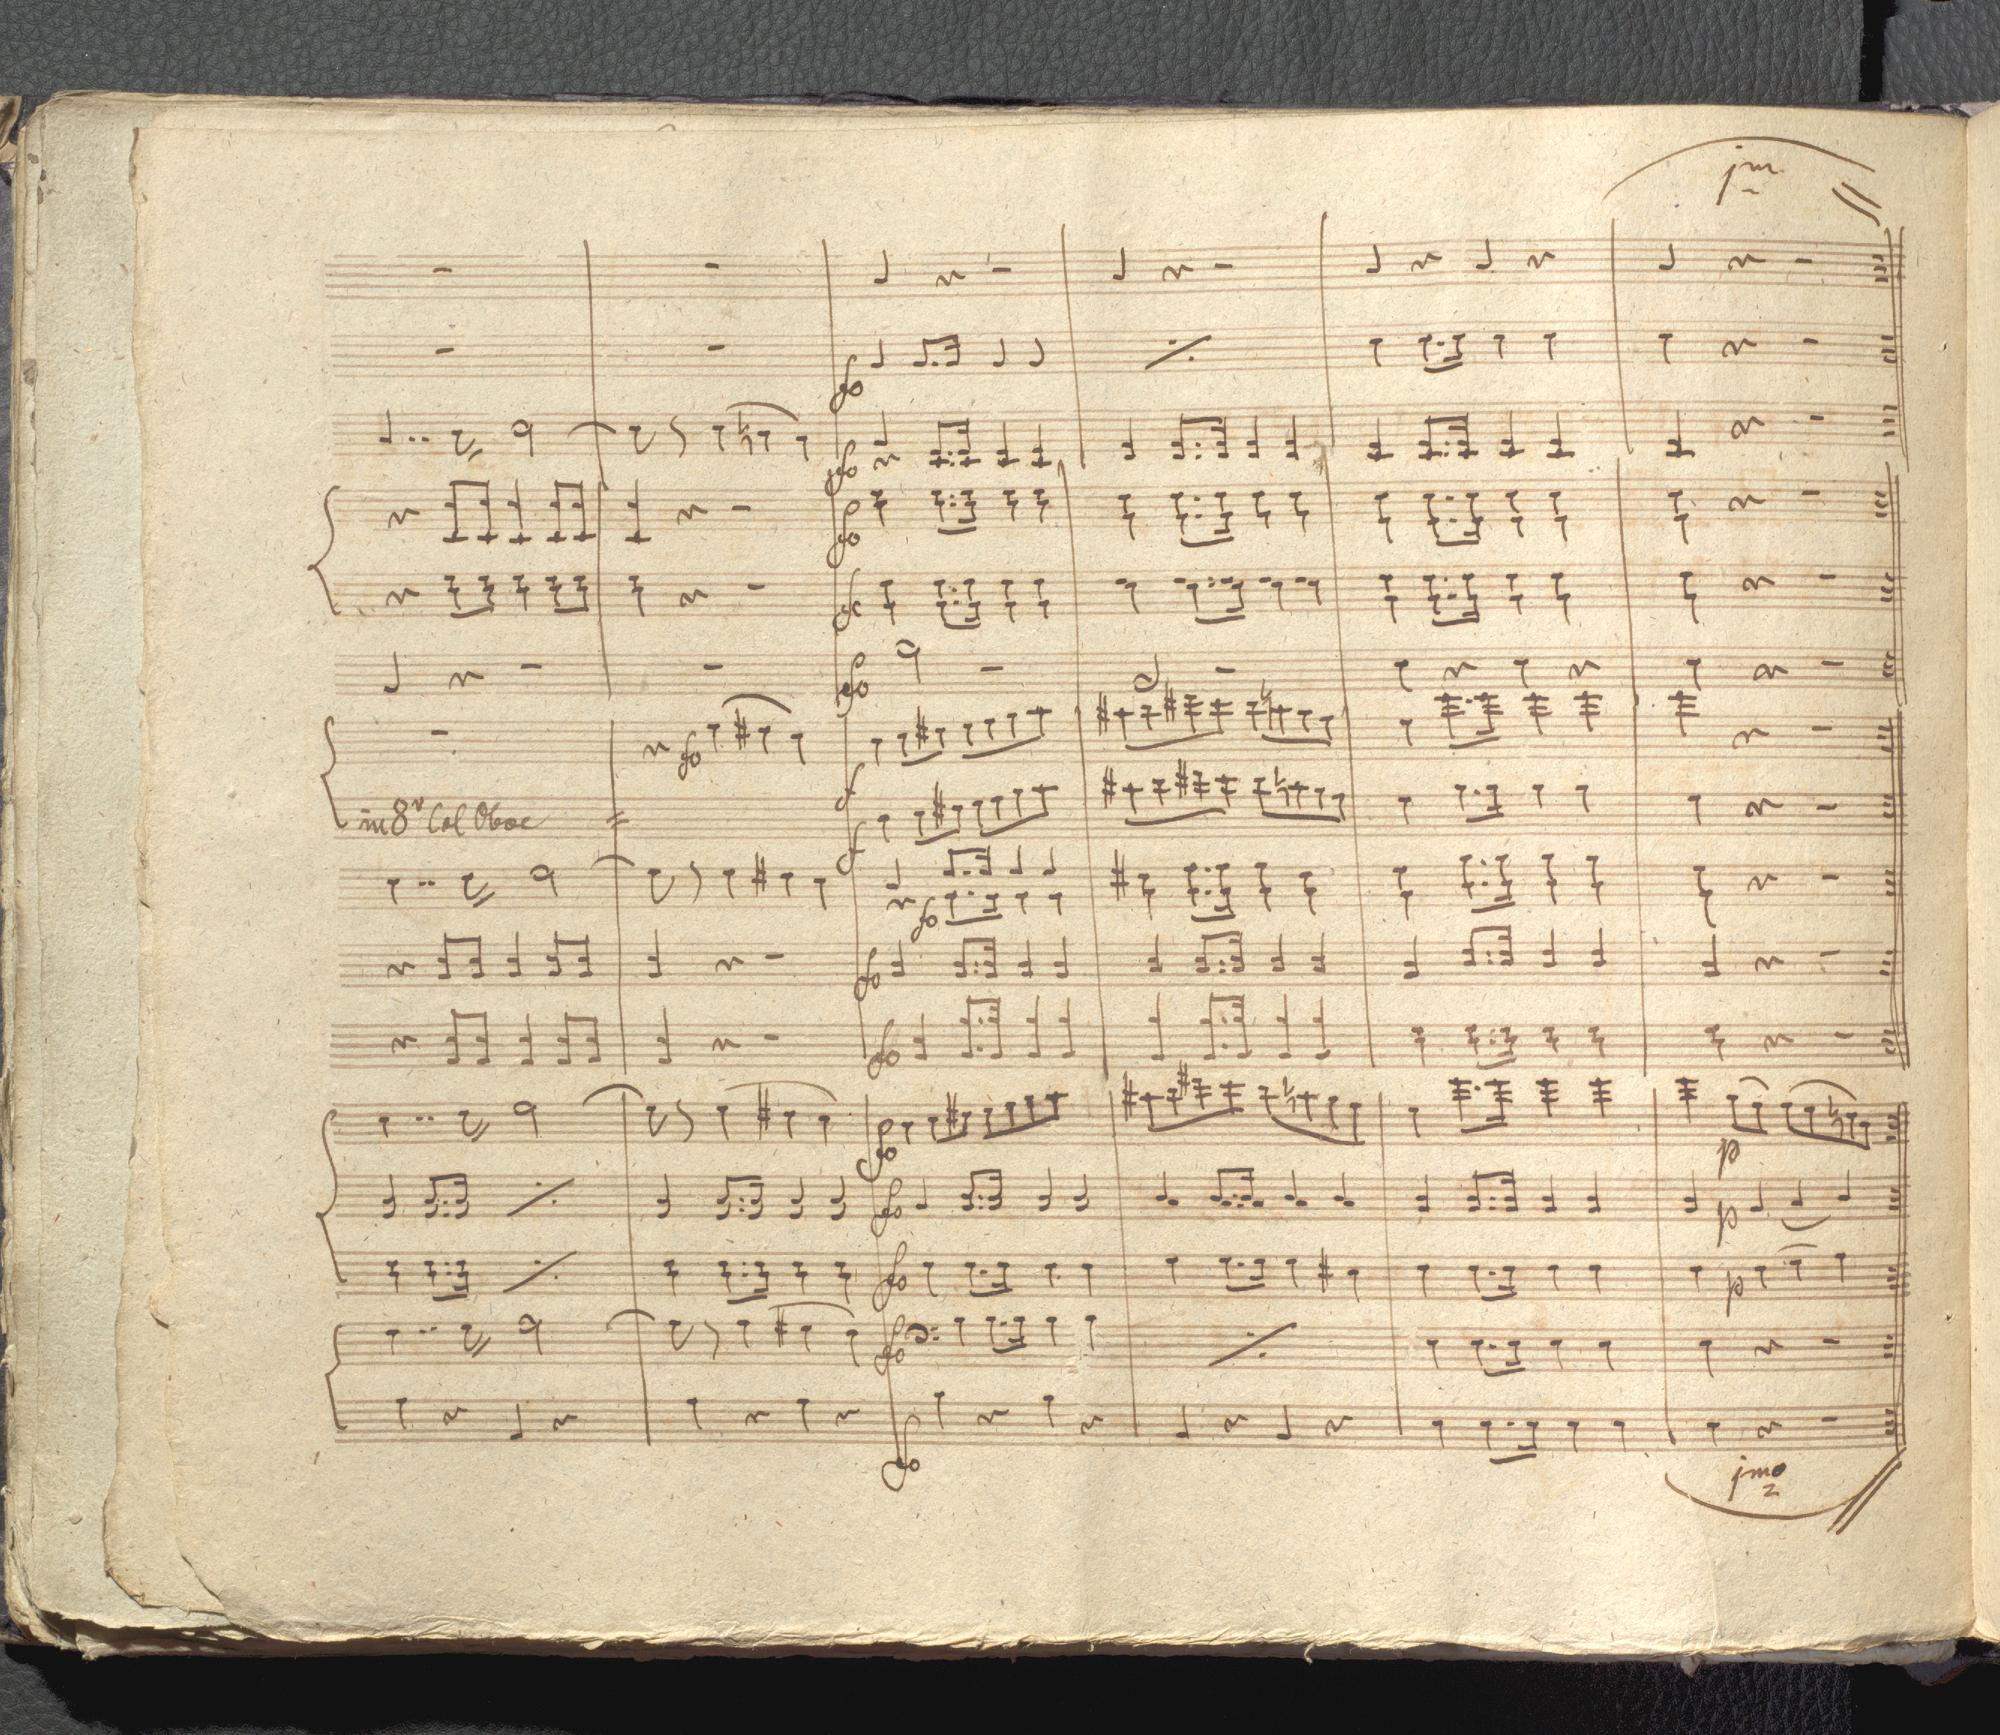 jm
fo
fo
fo
fo
fo
fo
f
in 8v Col Oboe
f
fo
fo
fo
fo
p
fo
p
fo
p
fo
fo
jmo